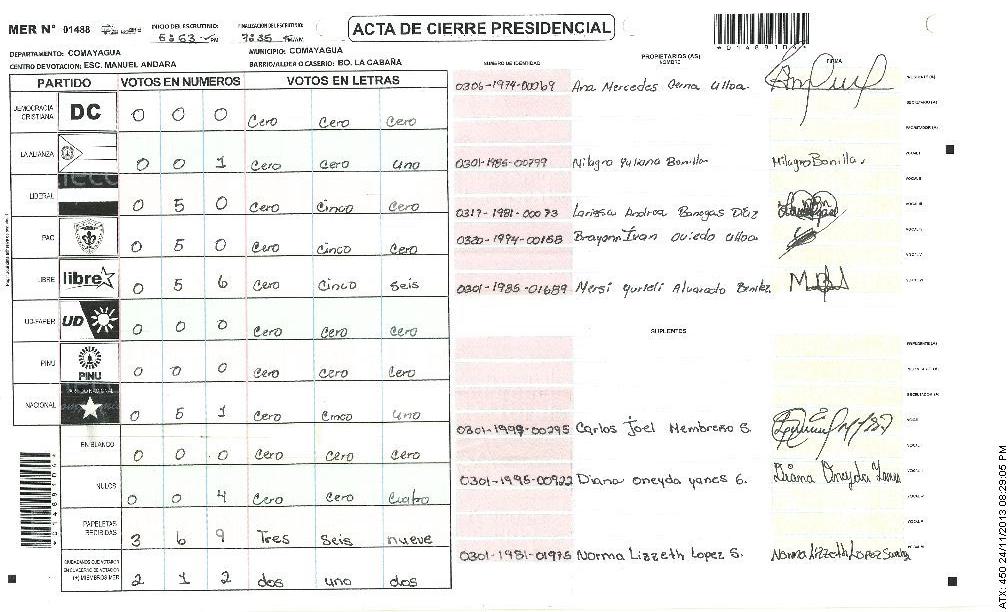 MER Nº 01488
INICIO DEL ESCRUTINIO:
FINALIZACIÓN DEL ESCRUTINIO:
ACTA DE CIERRE PRESIDENCIAL
DEPARTAMENTO: COMAYAGUA
MUNICIPIO: COMAYAGUA
CENTRO DE VOTACION: ESC. MANUEL ANDARA
BARRIO/ALDEA O CASERIO: BO. LA CABAÑA
PARTIDO VOTOS EN NUMEROS VOTOS EN LETRAS
DEMOCRACIA CRISTIANA DC 0 0 0 Cero Cero Cero
LA ALIANZA 0 0 1 Cero Cero uno
LIBERAL 0 5 0 Cero Cinco Cero
PAC 0 5 0 Cero Cinco Cero
LIBRE libre 0 5 6 Cero Cinco seis
UD-FAPER UD 0 0 0 Cero Cero Cero
PINU PINU 0 0 0 Cero Cero Cero
NACIONAL 0 5 1 Cero Cinco uno
EN BLANCO 0 0 0 Cero Cero Cero
NULOS 0 0 4 Cero Cero Cuatro
PAPELETAS RECIBIDAS 3 6 9 Tres seis nueve
CIUDADANOS QUE VOTARON EN CUADERNO DE VOTACION (+) MIEMBROS MER 2 1 2 dos uno dos
PROPIETARIOS (AS)
NUMERO DE IDENTIDAD NOMBRE FIRMA
0306-1974-00069 Ana Mercedes Ulloa
0301-1985-00799 Milagro Yuliana Bonilla Milagro Bonilla
0317-1981-00073 Larissa Andrea Banegas Díaz
0320-1994-00158 Brayann Ivan Oviedo Ulloa
0301-1985-01689 Mersi Alvarado Benitez
SUPLENTES
Carlos Joel Membreño S.
0301-1995-00922 Diana Oneyda Yanes G. Diana Oneyda Yanes
0301-1981-01975 Norma Lizzeth Lopez S. Norma Lizzeth Lopez
ATX: 450 24/11/2013 08:29:05 PM